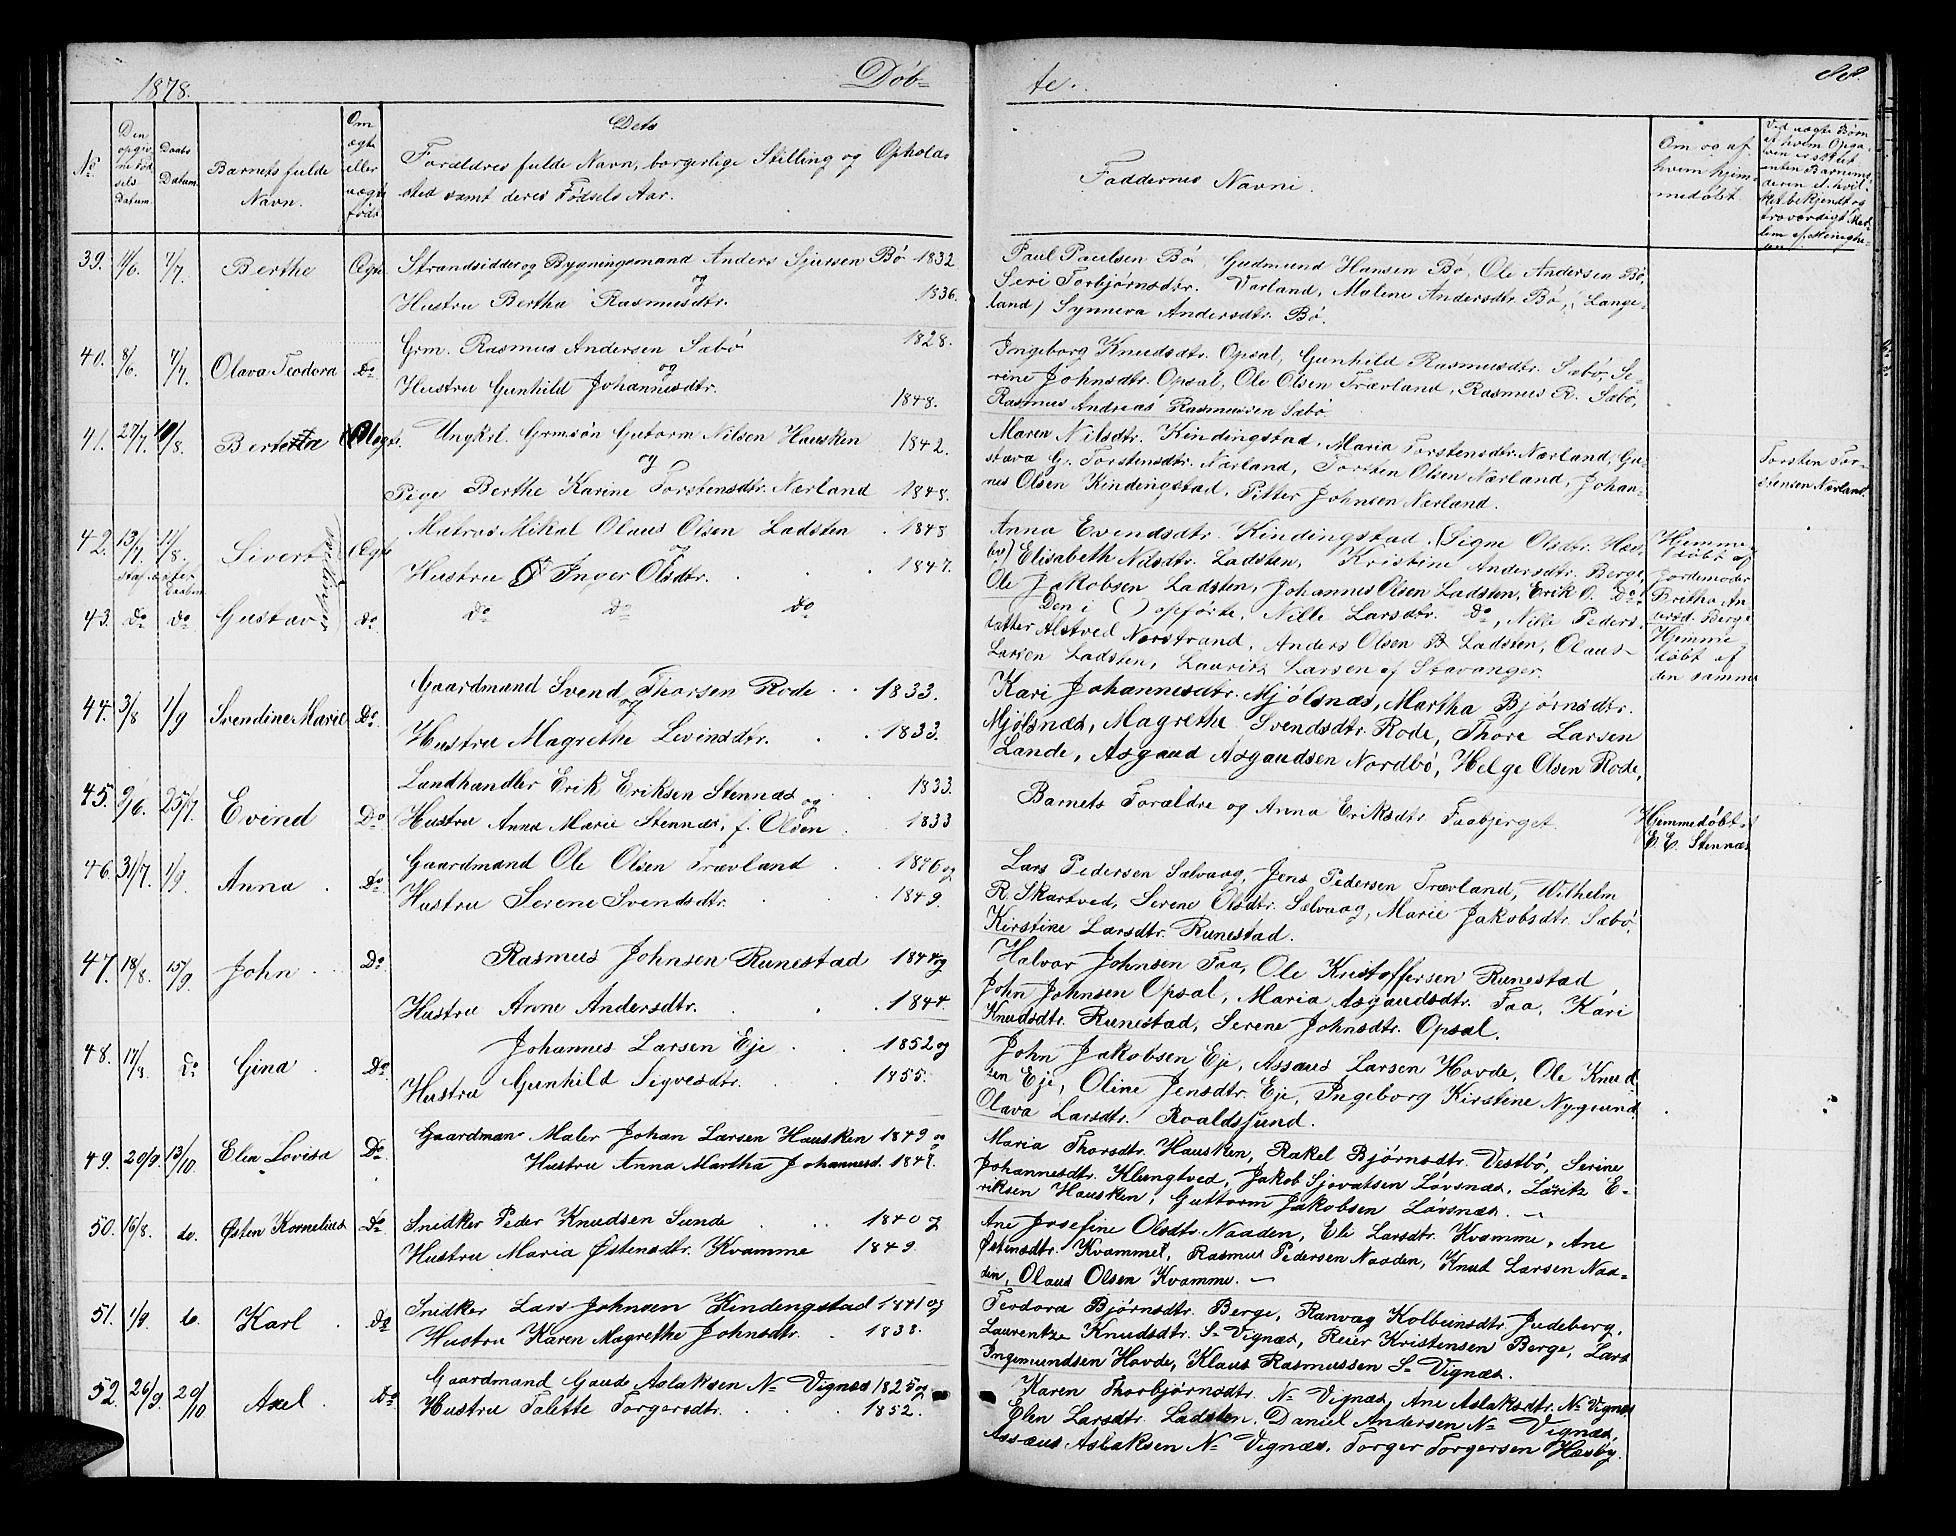 1878.
Døb-
te.
88.
No
Den
opgiv-
ne Fød-
sels
Datum.
Daabs
Datum.
Barnets fulde
Navn.
Om
ægte
eller
uægte
født.
Dets
Forældres fulde Navn, borgerlige Stilling og Opholds
sted samt deres Fødsels Aar.
Faddernes Navne.
Om og af
hvem hjem-
medøbt.
39. 1/6. 7/7. Berthe Ægte
Strandsidder og Bygningsmand Anders Sjursen Bø 1832
og
Hustru Bertha Rasmusdtr. 1836.
Paul Paulsen Bø, Gudmund Hansen Bø, Ole Andersen Bø,
Seri Torbjørnsdtr. Varland, Malene Andersdtr. Bø, (Lange-
land) Synneva Andersdtr. Bø.
40. 8/6. 7/7. Olava Teodora Do
Grm. Rasmus Andersen Sæbø 1828.
og
Hustru Gunhild Johannesdtr. 1848.
Ingeborg Knudsdtr. Opsal, Gunhild Rasmusdtr. Sæbø, Se-
rine Johnsdtr. Opsal, Ole Olsen Trævland, Rasmus R. Sæbø,
Rasmus Andreas Rasmussen Sæbø
41. 27/7. 10/8. Uægte.
Ungkrl. Grmsøn Gutorm Nilsen Hausken 1842.
og
Pige Berthe Karine Torstensdtr. Nærland 1848.
Maren Nilsdtr. Kindingstad, Maria Torstensdtr. Nærland, Gu-
stava G. Torstensdtr. Nærland, Torsten Olsen Nærland, Johan-
nes Olsen Kindingstad, Pitter Johnsen Nærland.
Torsten Tor-
stensen Nærland.
42. 13/7. 11/8. Sivert Ægte
Matros Mikal Olaus Olsen Ladsten 1848
og
Hustru Inger Olsdtr. 1847.
Anna Evendsdtr. Kindingstad, (Signe Olsdtr. Hæs-
by) Elisabeth Nilsdtr. Ladsten, Kristine Andersdtr. Berge,
Ole Jakobsen Ladsten, Johannes Olsen Ladsten, Erik O. Do
Hjemme
døbt af
Jordemoder
Britha An
dersd. Berge
tvillinger
43. Do Do Gustav Do
Do Do Do
Den i ( ) opførte, Nille Larsdtr. Do, Nille Peders-
datter Alstved Nørstrand, Anders Olsen B Ladsten, Olaus
Larsen Ladsten, Lauritz Larsen af Stavanger.
Hjemme
døbt af
den samme
44. 3/8 1/9 Svendine Marie Do
Gaardmand Svend Thorsen Rode 1833.
og
Hustru Magrethe Levinsdtr. 1833.
Kari Johannesdtr. Mjølsnæs, Martha Bjørnsdtr.
Mjølsnæs, Magrethe Svendsdtr. Rode, Thore Larsen
Lande, Asgaud Asgaudsen Nordbø, Helge Olsen Rode,
45. 9/6. 25/7. Evind Do
Landhandler Erik Eriksen Stennæs og 1833.
Hustru Anna Marie Stennæs, f. Olsen 1833
Barnets Forældre og Anna Eriksdtr. Faabjerget.
Hjemmedøbt
E. E. Stennæs
46. 31/7. 1/9. Anna Do
Gaardmand Ole Olsen Trævland 1846 og
Hustru Serene Svendsdtr. 1849.
Lars Pedersen Salvaag, Jens Pedersen Trævland, Wilhelm
R. Skartved, Serene Olsdtr. Sælvaag, Marie Jakobsdtr. Sæbø,
Kirstine Larsdtr. Runestad.
47. 18/8. 15/9. John Do
Rasmus Johnsen Runestad 1844 og
Hustru Anne Andersdtr. 1844.
Halvor Johnsen Faa, Ole Kristoffersen Runestad
John Johnsen Opsal, Maria Asgaudsdtr. Faa, Kari
Knudsdtr. Runestad, Serene Johnsdtr. Opsal.
48. 17/8. Do Gina Do
Johannes Larsen Eje 1852 og
Hustru Gunhild Sigvesdtr. 1855.
John Jakobsen Eje, Assaus Larsen Hovde, Ole Knud-
sen Eje, Oline Jensdtr. Eje, Ingeborg Kirstine Nygsund
Olava Larsdtr. Roaldsjund.
49. 20/9. 13/10. Elen Lovisa Do
Gaardman Maler Johan Larsen Hausken 1849 og
Hustru Anna Martha Johannesd. 1849.
Maria Thorsdtr. Hausken, Rakel Bjørnsdtr. Vestbø, Serine
Johannesdtr. Klungtved, Jakob Sjovatsen Løvsnæs, Laritz E-
riksen Hausken, Guttorm Jakobsen Løvsnæs.
50. 16/8. do. Østen Kornelius Do
Snidker Peder Knudsen Sunde 1840 og
Hustru Maria Østensdtr. Kvamme 1849
Ane Josefine Olsdtr. Naaden, Eli Larsdtr. Kvamme, Ane
Østensdtr. Kvamme, Rasmus Pedersen Naaden, Knud Larsen Naa-
den, Olaus Olsen Kvamme.
51. 1/9. do. Karl Do
Snidker Lars Johnsen Kindengstad 1841 og
Hustru Karen Magrethe Johnsdtr. 1838.
Teodora Bjørnsdtr. Berge, Ranvag Kolbeinsdtr. Judeberg,
Laurentze Knudsdtr. S. Vignæs, Reier Kristensen Berge, Lars
Ingemundsen Hovde, Klaus Rasmussen S. Vignæs.
52. 26/9 20/10 Axel Do
Gaardmand Gaude Aslaksen N. Vignæs 1825 og
Hustru Talette Torgersdtr. 1852.
Karen Thorbjørnsdtr. N. Vignæs, Ane Aslaksdtr. N. Vignæs
Elen Larsdtr. Ladsten, Daniel Andersen N. Vignæs,
Assæus Aslaksen N. Vignæs, Torger Torgersen Hæsby.